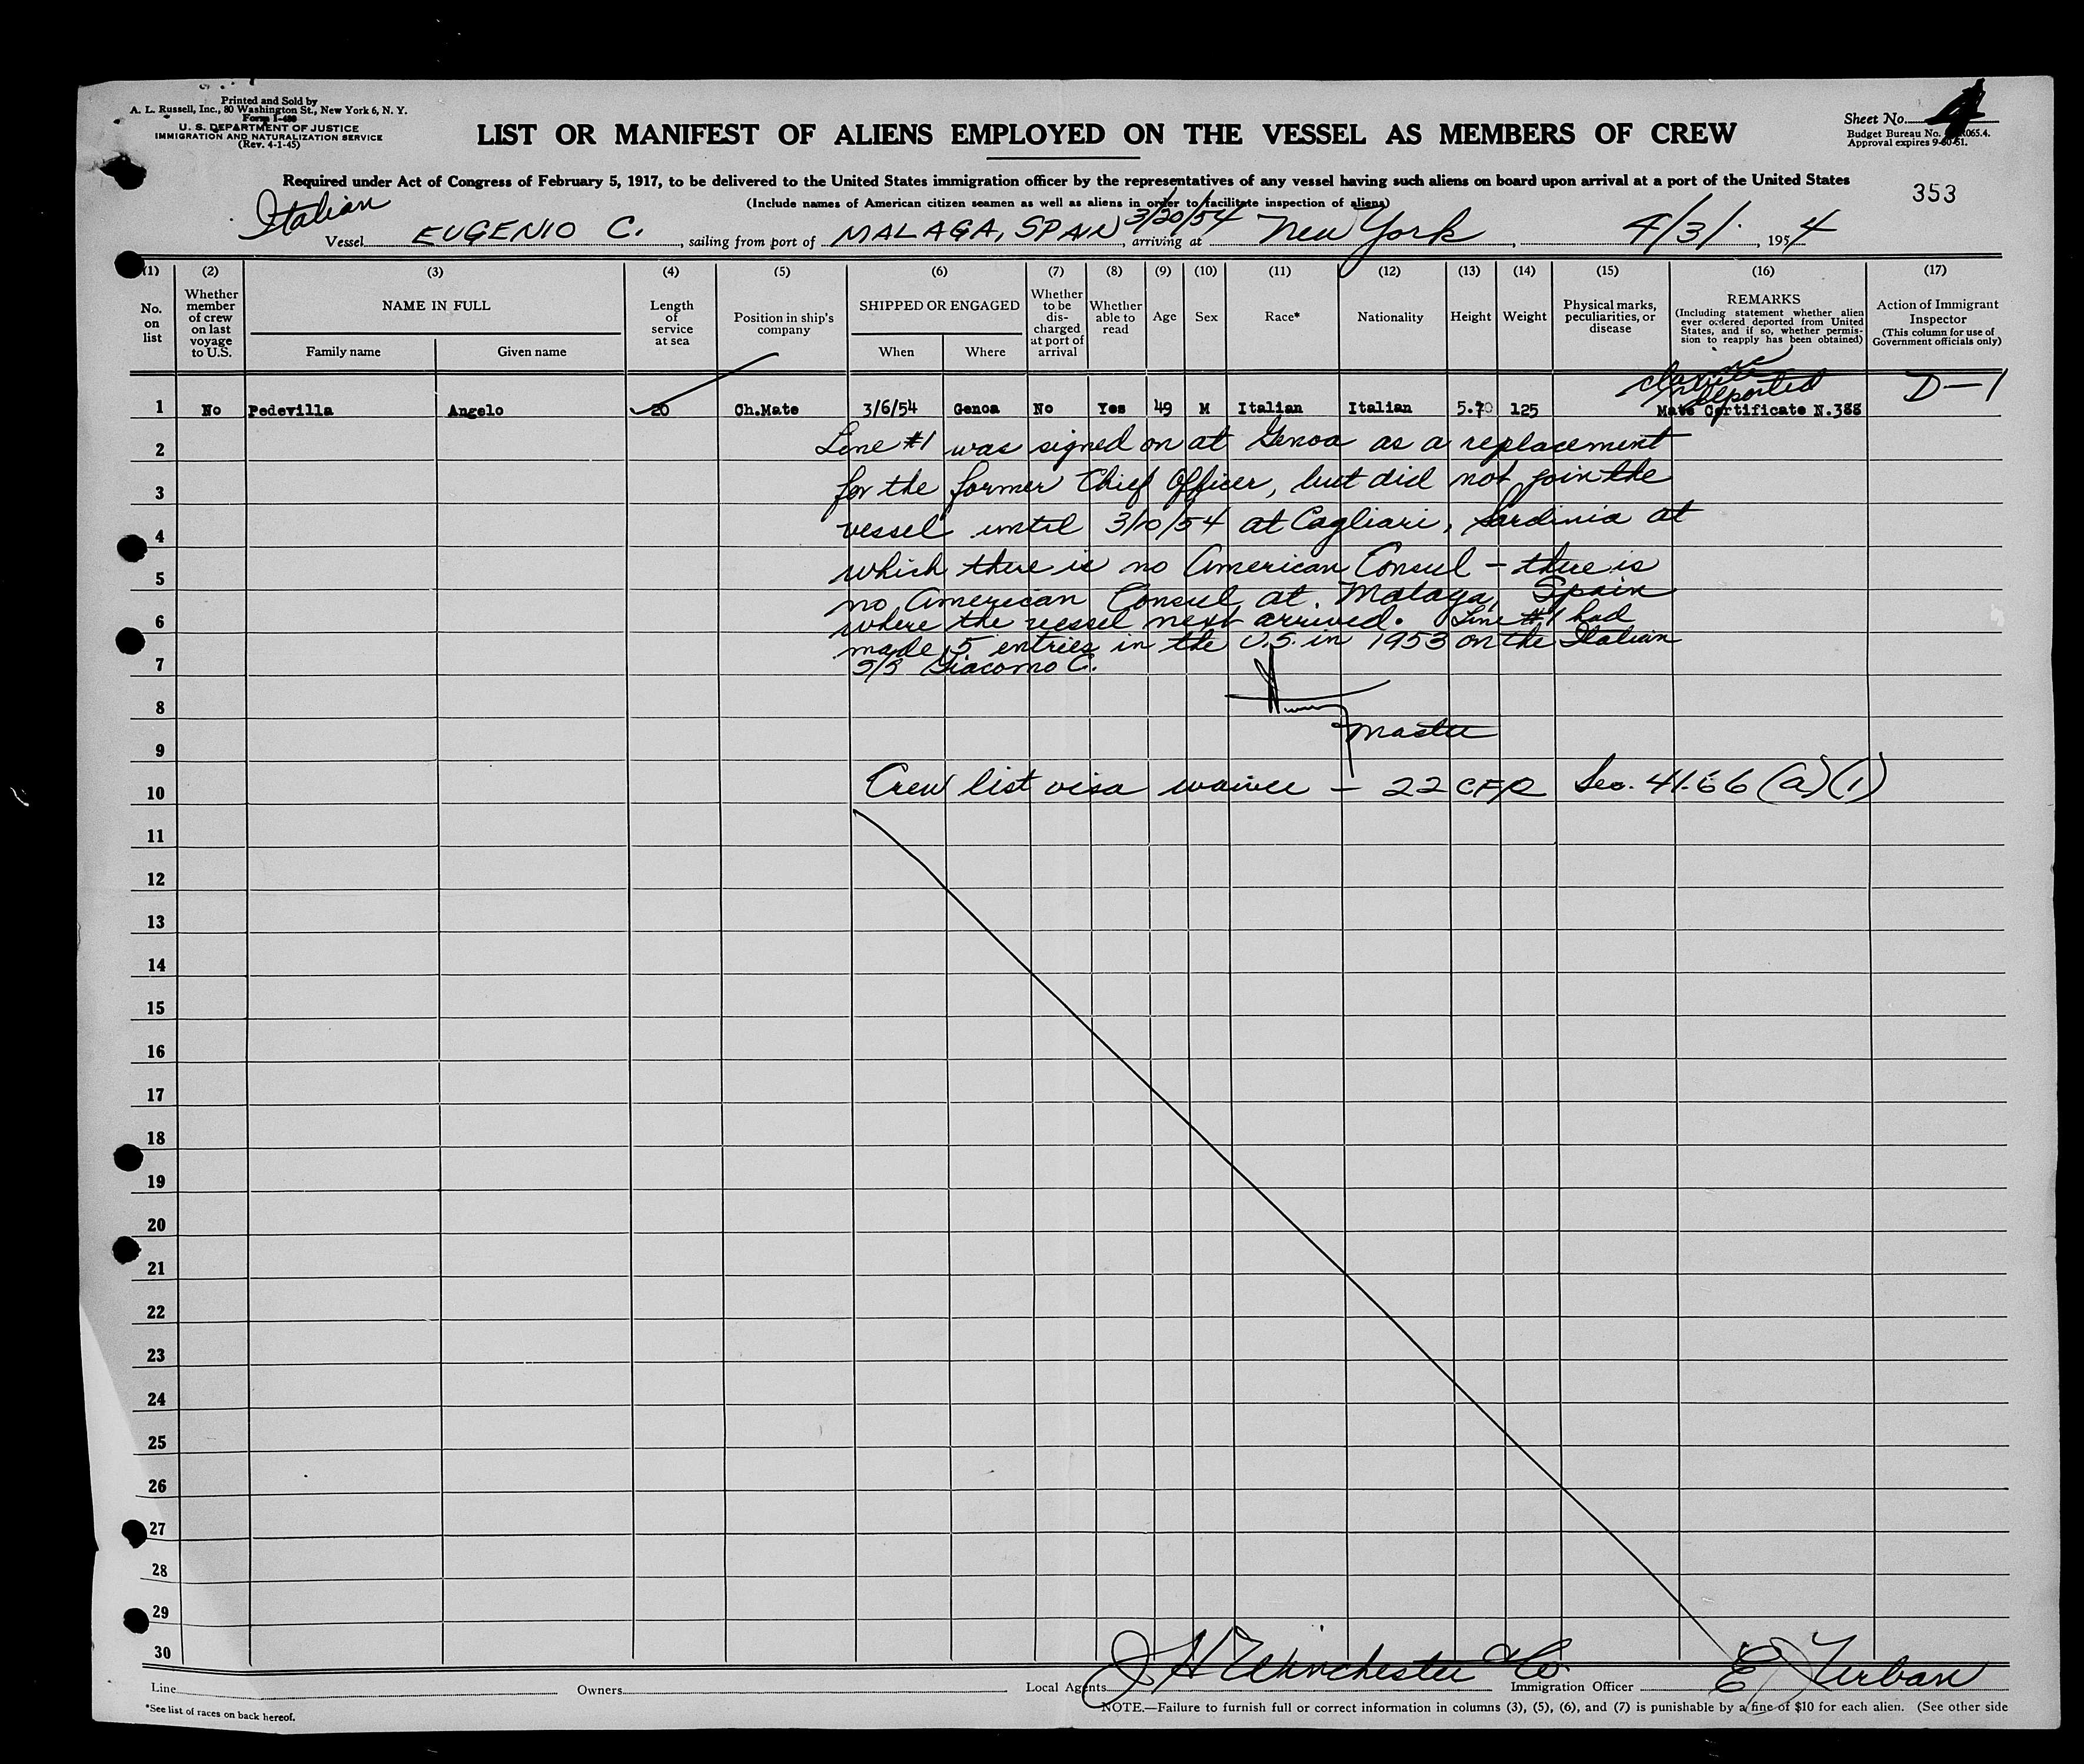 Printed and Sold by
A. L. Russell, Inc., 80 Washington St., New York 6, N. Y.
Form I-488
U. S. DEPARTMENT OF JUSTICE
IMMIGRATION AND NATURALIZATION SERVICE
(Rev. 4-1-45)
LIST OR MANIFEST OF ALIENS EMPLOYED ON THE VESSEL AS MEMBERS OF CREW
Sheet No. 4
Budget Bureau No. 065.4.
Approval expires 9-30-51.
Required under Act of Congress of February 5, 1917, to be delivered to the United States immigration officer by the representatives of any vessel having such aliens on board upon arrival at a port of the United States
353
(Include names of American citizen seamen as well as aliens in order to facilitate inspection of aliens)
Italian
Vessel EUGENIO C. , sailing from port of MALAGA, SPAIN 3/20/54, arriving at New York, 4/3/. , 1954
(1) (2) (3) (4) (5) (6) (7) (8) (9) (10) (11) (12) (13) (14) (15) (16) (17)
No. on list
Whether member of crew on last voyage to U.S.
NAME IN FULL
Family name
Given name
Length of service at sea
Position in ship's company
SHIPPED OR ENGAGED
When
Where
Whether to be discharged at port of arrival
Whether able to read
Age
Sex
Race*
Nationality
Height
Weight
Physical marks, peculiarities, or disease
REMARKS
(Including statement whether alien ever ordered deported from United States, and if so, whether permission to reapply has been obtained)
Action of Immigrant Inspector
(This column for use of Government officials only)
deported
1 No Pedevilla Angelo 20 Ch.Mate 3/6/54 Genoa No Yes 49 M Italian Italian 5.70 125 Mate Certificate N.388 D-1
2 Line #1 was signed on at Genoa as a replacement
3 for the former Chief Officer, but did not join the
4 vessel until 3/10/54 at Cagliari, Sardinia at
5 which there is no American Consul - there is
no American Consul at Malaga, Spain
6 where the vessel next arrived. Line #1 had
made 5 entries in the U.S. in 1953 on the Italian
7 S/S Giacomo C.
8
Master
9
10 Crew list visa waiver - 22 CFR Sec. 41.66 (a)(1)
11
12
13
14
15
16
17
18
19
20
21
22
23
24
25
26
27
28
29
30
Line Owners Local Agents J H Winchester & Co. Immigration Officer E J Urban
*See list of races on back hereof.
NOTE.—Failure to furnish full or correct information in columns (3), (5), (6), and (7) is punishable by a fine of $10 for each alien. (See other side